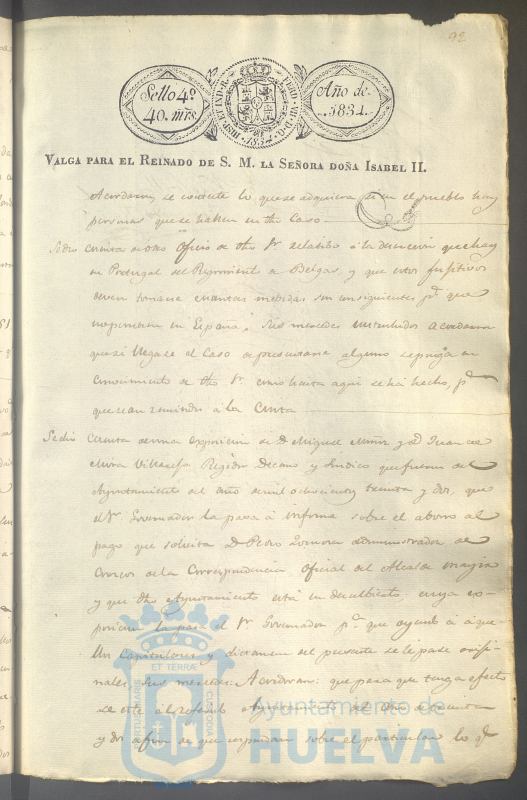 92
Sello 4º
40. mrs.
HISP. ET IND. R. FERD. VII. D. G.
1834
Año de
1834.
VALGA PARA EL REINADO DE S. M. LA SEÑORA DOÑA ISABEL II.
Acordaron se conteste lo que se adquiera si en el pueblo hay
personas que se hallen en dho Caso.
Se dio Cuenta de otro Oficio de dho Sr. relatibo a la que hay
en Portugal del Regimiento de Belgas, y que estos fugitivos
deven tomarse cuantas medidas son consiguientes pª que
no penetren en España; Sus mercedes Acordaron
que si llega el Caso de presentarse alguno se ponga en
Conocimiento de dho Sr. como hasta aqui se há hecho, pª
que sean remitidos a la
Se dio Cuenta de una exposicion de Dn Miguel Muñiz y Dn Juan de
Mora Villaseca Regidor Decano y Sindico que fueron del
Ayuntamiento del año de mil ochocientos treinta y dos, que
el Sr. Governador la pasa á informe sobre el abono al
pago que solicita Dn Pedro Administrador de
Correos de la Correspondencia Oficial del Alcalde mayor
y que dho Ayuntamiento está en descubierto, cuya ex-
posicion la pasa el Sr. Governador pª que oyendo á aque-
llos Capitulares y dictamen del presente se le pase origi-
nales; Sus mercedes: Acordaron: que para que tenga efecto
se cite á el referido Ayuntamiento del año de treinta
y dos afin de que respondan sobre el particular lo qe
PORTUS MARIS
ET TERRÆ
CUSTODIA
Ayuntamiento de
HUELVA